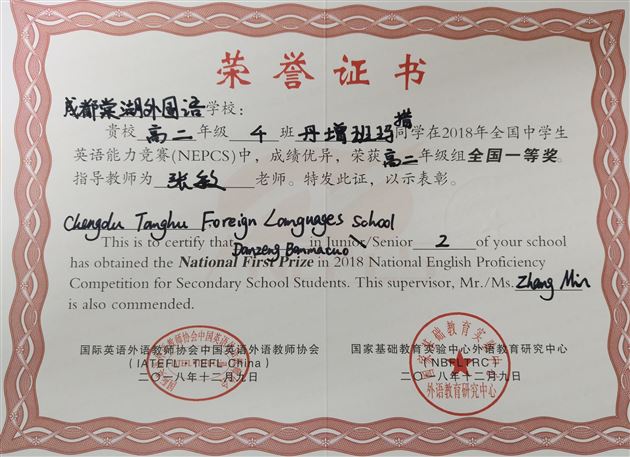 荣誉证书
成都棠湖外国语学校：
贵校高二年级4班丹增班玛措同学在2018年全国中学生
英语能力竞赛(NEPCS)中，成绩优异，荣获高二年级组全国一等奖。
指导教师为张敏老师。特发此证，以示表彰。
Chengdu Tanghu Foreign Languages School
This is to certify that Danzeng Banmacuo in Junior/Senior 2 of your school
has obtained the National First Prize in 2018 National English Proficiency
Competition for Secondary School Students. This supervisor, Mr./Ms. Zhang Min
is also commended.
国际英语外语教师协会中国英语外语教师协会
(IATEFL·TEFL China)
二〇一八年十二月九日
国家基础教育实验中心外语教育研究中心
(NBFLTRC)
二〇一八年十二月九日
国家基础教育实验中心
外语教育研究中心